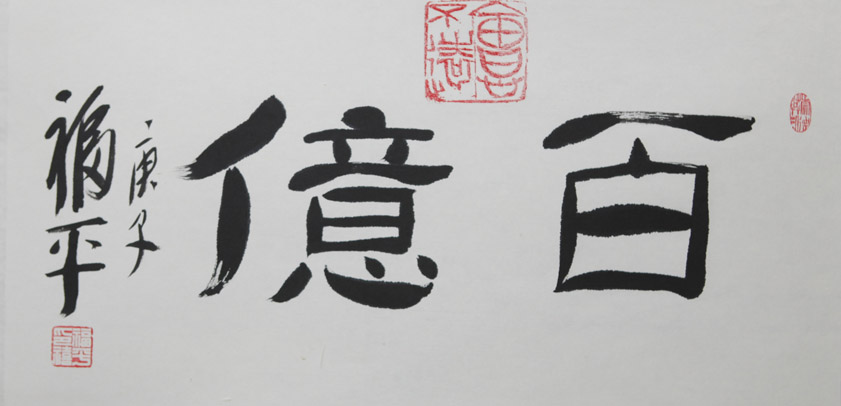 百億
庚子
福平